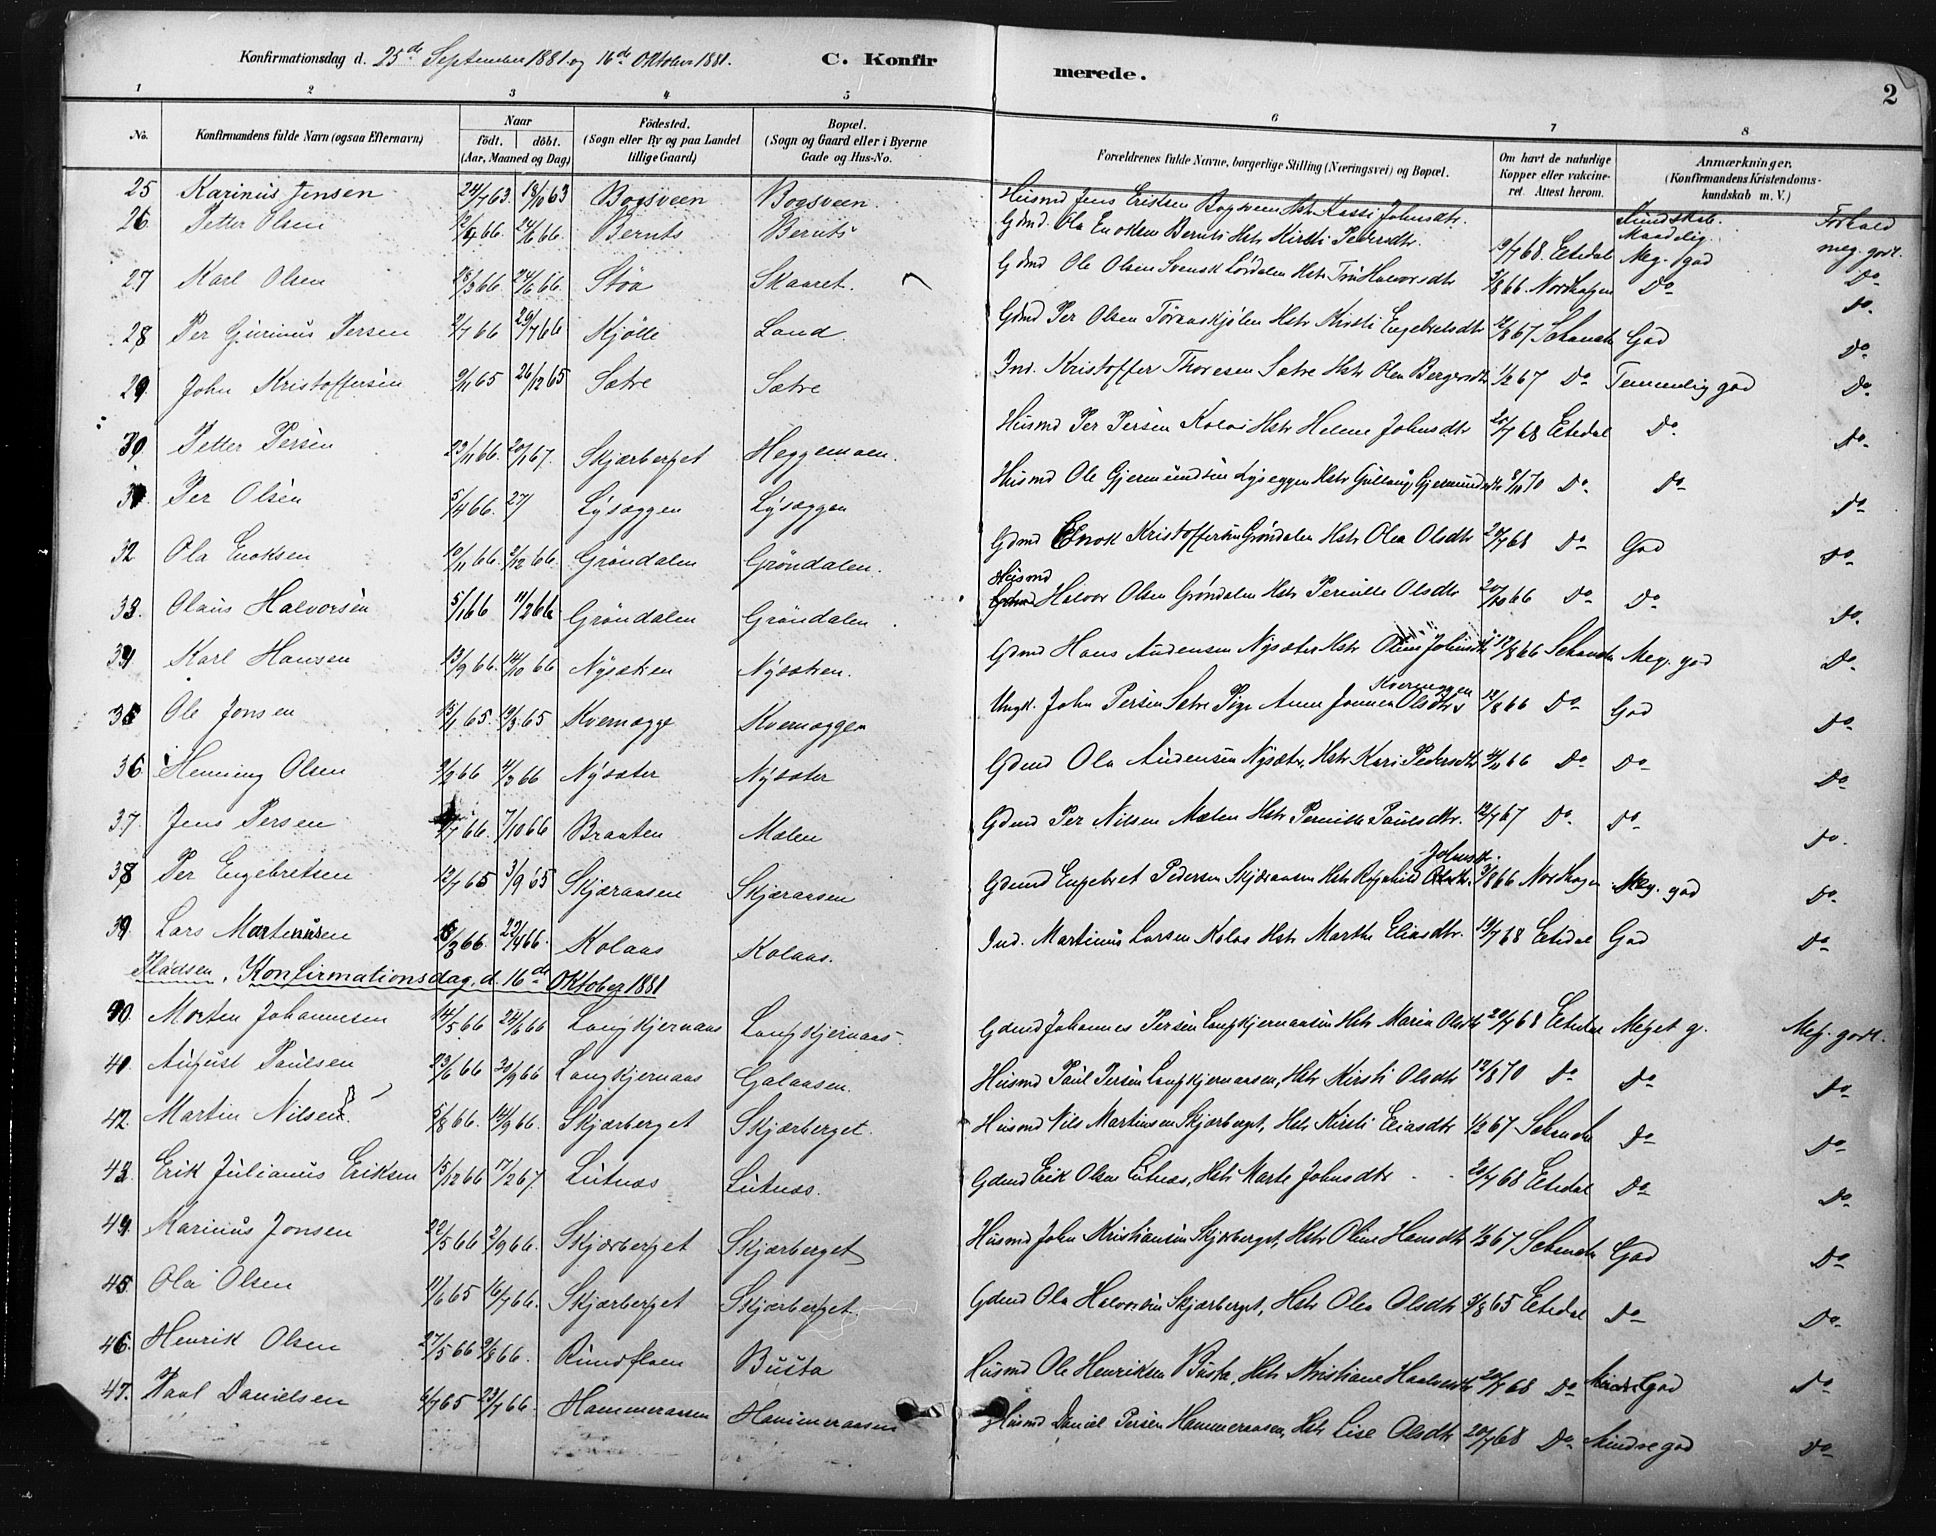 Konfirmationsdag d. 25de September 1881 og 16de Oktober 1881. C. Konfirmerede. 2
1 2 3 4 5 6 7 8
No. Konfirmandens fulde Navn (ogsaa Efternavn) Naar födt. döbt. (Aar, Maaned og Dag) Födested. (Sogn eller By og paa Landet tillige Gaard) Bopæl. (Sogn og Gaard eller i Byerne Gade og Hus-No. Forældrenes fulde Navne, borgerlige Stilling (Næringsvei) og Bopæl. Om havt de naturlige Kopper eller vakcineret. Attest herom. Anmærkninger. (Konfirmandens Kristendomskundskab m. V.)
25 Karinus Jensen 24/7 63 18/10 63 Bogsveen Bogsveen. Husmd Jens Eriksen Bogsveen Hstr Kassi Johnsdtr. Kundskab. Forhold
26 Petter Olsen 12/4 66 24/6 66 Bernts Bernts Gdmd. Ola Enoksen Bernts Hstr Kirsti Pedersdtr. 19/7 68 Eltdal Meg. god meg. godt.
27 Karl Olsen 28/3 66 24/6 66. Stöa Skaaret. Gdmd Ole Olsen Svensk Lördalen Hstr Halvorsdtr 3/8 66. Nordhagen Do Do
28 Per Gurinus Persen 2/7 66 29/7 66 Kjölle Land. Gdmd Per Olsen Hstr Kirsti Engebretsdtr 12/8 67 God Do
29 John Kristoffersen 9/11 65 26/12 65 Sætre Sætre Ind. Kristoffer Thoresen Sætre Hstr Olea Bergersdtr 1/2 67 Do Temmelig god Do
30 Petter Persen 23/11 66. 20/1 67. Skjærberget Heggemoen. Husmd Per Persen Kolos Hstr Helene Johnsdtr 20/7 68 Eltdal Do Do
31 Per Olsen 5/4 66. 27/ Lysæggen Lysæggen Husmd Ole Gjermundsen Lyseggen Hstr Gullaug Gjermundsdtr 8/10 70 Do Do Do
32 Ola Enoksen 10/11 66 2/12 66. Gröndalen Gröndalen. Gdmd Enok Kristoffersen Gröndalen Hstr Olea Olsdtr 20/7 68 Do God Do
33. Olaus Halvorsen 5/1 66 11/2 66 Gröndalen Gröndalen. Husmd Halvor Olsen Gröndalen Hstr Pernille Olsdtr 20/10 66 Do Do Do
34 Karl Hansen 13/9 66. 14/10 66 Nysæteren Nysæteren. Gdmd Hans Audensen Nysæter Hstr Oline Johnsdtr 12/8 66 Meg. god Do
35 Ole Jonsen 15/1 65. 19/3 65 Kvernægge Kvernæggen Ungk. John Persen Sætre Pige Anne Jonnea Olsdtr Kverneggen 12/8 66 Do God Do
36 Henning Olsen 3/2 66 4/3 66 Nysæter Nysæter Gdmd Ola Audensen Nysæter, Hstr Kari Pedersdtr 11/11 66 Do Do Do
37. Jens Persen /7 66. 7/10 66 Braaten Mælen Gdmd Per Nilsen Mælen Hstr Pernille Paulsdtr. 12/7 67 Do. Do Do
38 Per Engebretsen 12/7 65 3/9 65 Skjæraasen Skjæraasen Gdmd Engebret Pedersen Skjæraasen Hstr Ragnhild Johnsdtr. 3/8 66 Nordhagen Meg. god Do
39 Lars Martinusen /3 66. 22/4 66. Kolaas Kolaas. Ind. Martinus Larsen Kolos Hstr Marthe Eliasdtr. 19/7 68 Eltdal God Do
Plådsen. Konfirmationsdag d. 16de Oktober 1881
40. Morten Johannesen 14/5 66 24/6 66 Langkjernaas Langkjernaas Gdmd Johannes Persen Langkjernaasen Hstr Maria Olsdtr 20/7 68 Eltdal Meget g. Meg. godt.
40. August Paulsen 23/6 66 30/9 66 Langkjernaas Galaasen. Husmd Paul Persen Langkjernaasen, Hstr Kirsti Olsdtr 12/8 70 Do Do Do
42. Martin Nilsen 5/8 66. 14/9 66. Skjærberget Skjærberget. Husmd Nils Martinusen Skjærberget, Hstr Kirsti Eliasdtr 1/2 67 Do Do
43. Erik Julianus Eriksen 15/12 66 17/2 67. Lutnæs Lutnæs. Gdmd Erik Olsen Lutnæs, Hstr Marte Johnsdtr 20/7 68 Eltdal Do Do
44. Marinus Jonsen 22/5 66 2/9 66. Skjærberget Skjærberget Husmd John Kristiansen Skjærberget, Hstr Oline Hansdtr 1/2 67 God Do
45. Ola Olsen 11/6 65 16/7 66. Skjærberget Skjærberget Gdmd Ola Halvorsen Skjærberget, Hstr Olea Olsdtr 3/8 65 Eltdal Do Do
46. Henrik Olsen 27/5 66 9/8 66. Rundfloen Busta Husmd Ole Henriksen Busta, Hstr Kristiane 20/7 68 Do God Do
47. Paul Danielsen 6/7 65 23/7 66. Hammeraasen Hammeraasen Husmd Daniel Persen Hammeraasen, Hstr Lise Olsdtr 20/7 68 Do Mindre god Do